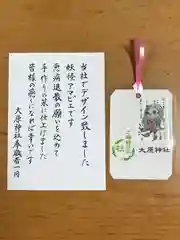 当社でデザイン致しました
妖怪アマビエです
悪病退散の願いを込めて
手作りの栞に仕上げました
皆様の癒しになれば幸いです
大原神社奉職者一同
大原神社